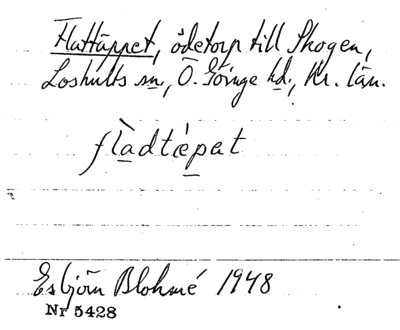 Flattäppet, ödetorp till Skogen,
Loshults sn, Ö. Göinge hd, Kr. län.
flàdtǽpat
Esbjörn Blohmé 1948
Nr 5428